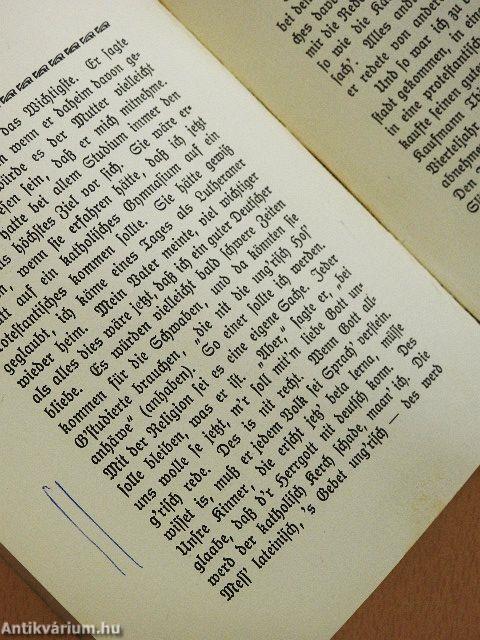 das Wichtigste. Er sagte
wenn er daheim davon ge-
würde es der Mutter vielleicht
sein, daß er mich mitnehme.
hatte bei allem Studium immer den
höchstes Ziel vor sich. Sie wäre er-
wenn sie erfahren hätte, daß ich jetzt
statt auf ein katholisches Gymnasium auf ein
protestantisches kommen sollte. Sie hätte gewiß
geglaubt, ich käme eines Tages als Lutheraner
wieder heim. Mein Vater meinte, viel wichtiger
als alles dies wäre jetzt, daß ich ein guter Deutscher
bliebe. Es würden vielleicht bald schwere Zeiten
kommen für die Schwaben, und da könnten sie
G'studierte brauchen, „die nit die ung'risch Hos'
anhäwe“ (anhaben). So einer sollte ich werden.
Mit der Religion sei es eine eigene Sache. Jeder
solle bleiben, was er ist. „Aber,“ sagte er, „bei
uns wolle se jetzt, m'r soll mit'n liebe Gott un-
g'risch rede. Des is nit recht. Wenn Gott all-
wisset is, muß er jedem Volk sei Sprach' versteih.
Unsre Kinner, die erscht jetz' bete lerna, müsse
glaabe, daß d'r Herrgott nit deutsch kann. Des
werd der katholisch Kerch schade, maan' ich. Die
Mess' lateinisch, 's Gebet ung'risch — des werd
bei dem
ches davon
mir die Rede
so wie die Ka
sach'. Alles and
er redete von ander
Und so war ich zu
stadt gekommen, in eine
in eine protestantisch
kaufte seinen guten
Kaufmann
Vierteljahr
abnehme
Den
Antikvárium.hu